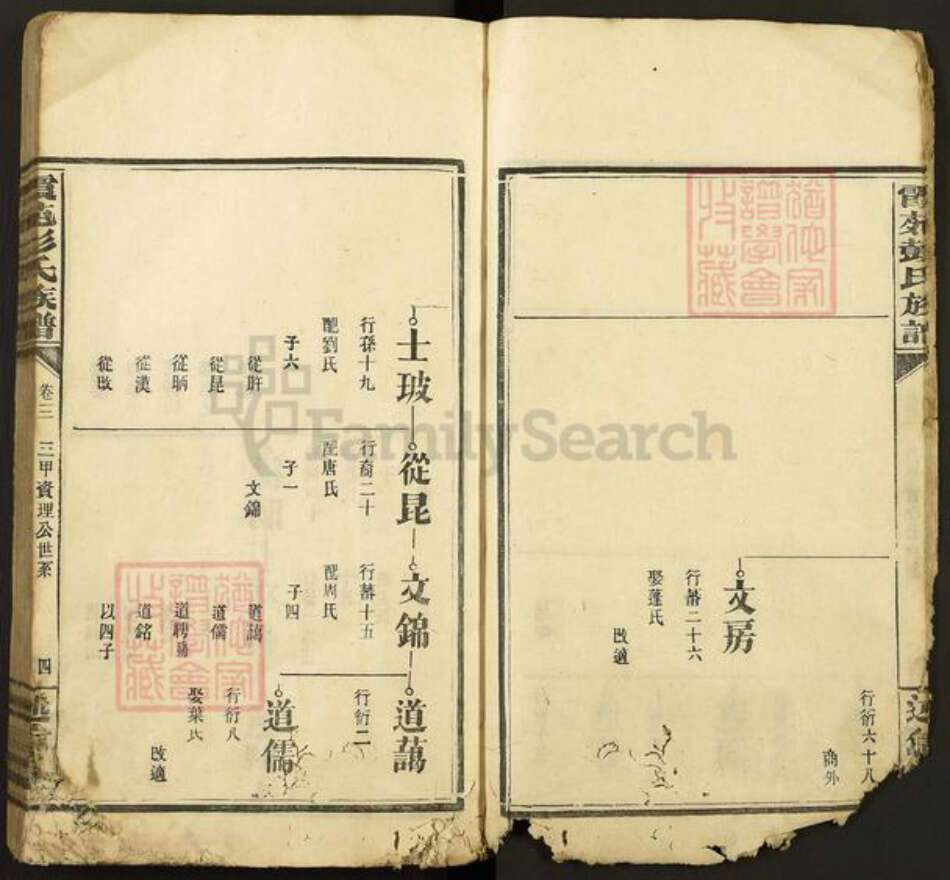 彭氏族譜
文房
行蕃二十六
娶蓬氏
改適
行衍六十八
商外
士玻
行孫十九
配劉氏
子六
從昆
從漢
從改
從昆
行裔二十
配唐氏
子一
文錦
文錦
行蕃十五
配周氏
子四
道藹
道儒
道聘
道銘
以四子
道藹
行衍二
道儒
行衍八
娶葉氏
改適
彭氏族譜
卷三
三甲資理公世系
四
猶他家譜學會收藏
猶他家譜學會收藏
FamilySearch